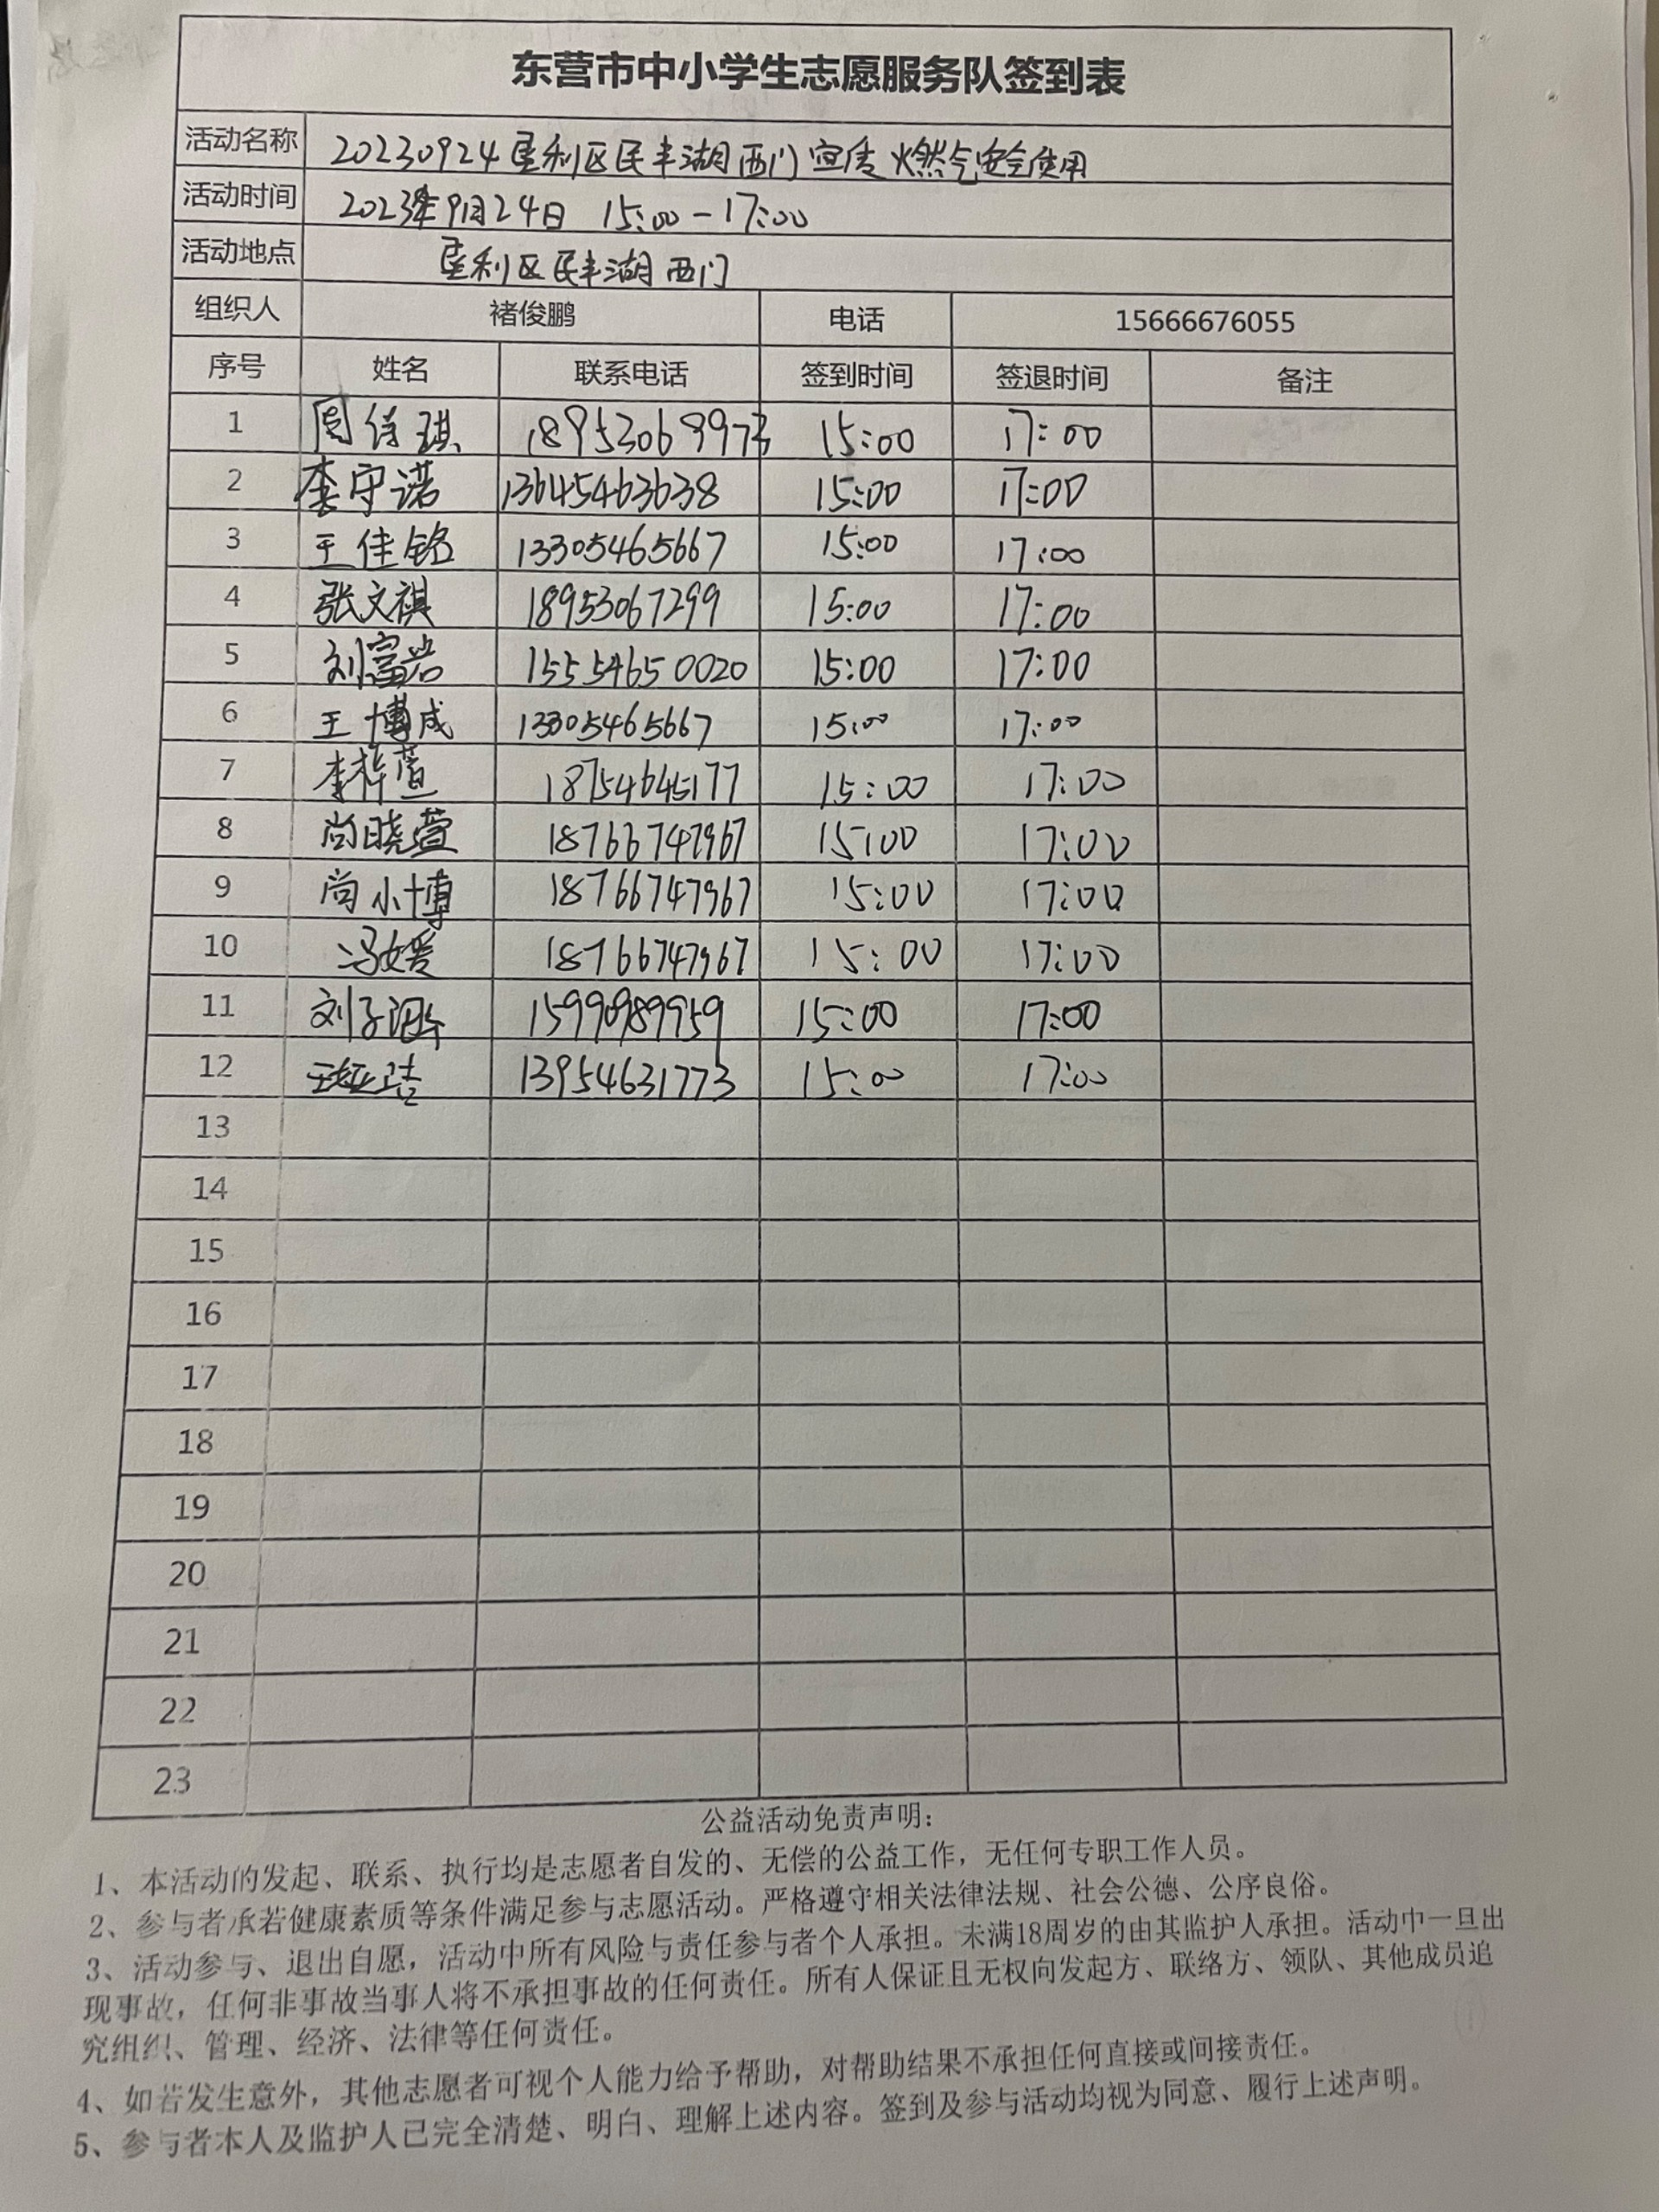 东营市中小学生志愿服务队签到表
活动名称 20230924垦利区民丰湖西门宣传燃气安全使用
活动时间 2023年9月24日 15:00-17:00
活动地点 垦利区民丰湖西门
组织人 褚俊鹏 电话 15666676055
序号 姓名 联系电话 签到时间 签退时间 备注
1 18953069973 15:00 17:00
2 李守诺 13645463638 15:00 17:00
3 王佳铭 13305465667 15:00 17:00
4 张文祺 18953067299 15:00 17:00
5 刘富岩 15554650020 15:00 17:00
6 王博成 13305465667 15:00 17:00
7 李梓萱 18754645177 15:00 17:00
8 尚晓萱 18766747967 15:00 17:00
9 尚小博 18766747967 15:00 17:00
10 冯媛 18766747967 15:00 17:00
11 刘子涵 15990989959 15:00 17:00
12 13954631773 15:00 17:00
13
14
15
16
17
18
19
20
21
22
23
公益活动免责声明：
1、本活动的发起、联系、执行均是志愿者自发的、无偿的公益工作，无任何专职工作人员。
2、参与者承若健康素质等条件满足参与志愿活动。严格遵守相关法律法规、社会公德、公序良俗。
3、活动参与、退出自愿，活动中所有风险与责任参与者个人承担。未满18周岁的由其监护人承担。活动中一旦出
现事故，任何非事故当事人将不承担事故的任何责任。所有人保证且无权向发起方、联络方、领队、其他成员追
究组织、管理、经济、法律等任何责任。
4、如若发生意外，其他志愿者可视个人能力给予帮助，对帮助结果不承担任何直接或间接责任。
5、参与者本人及监护人已完全清楚、明白、理解上述内容。签到及参与活动均视为同意、履行上述声明。